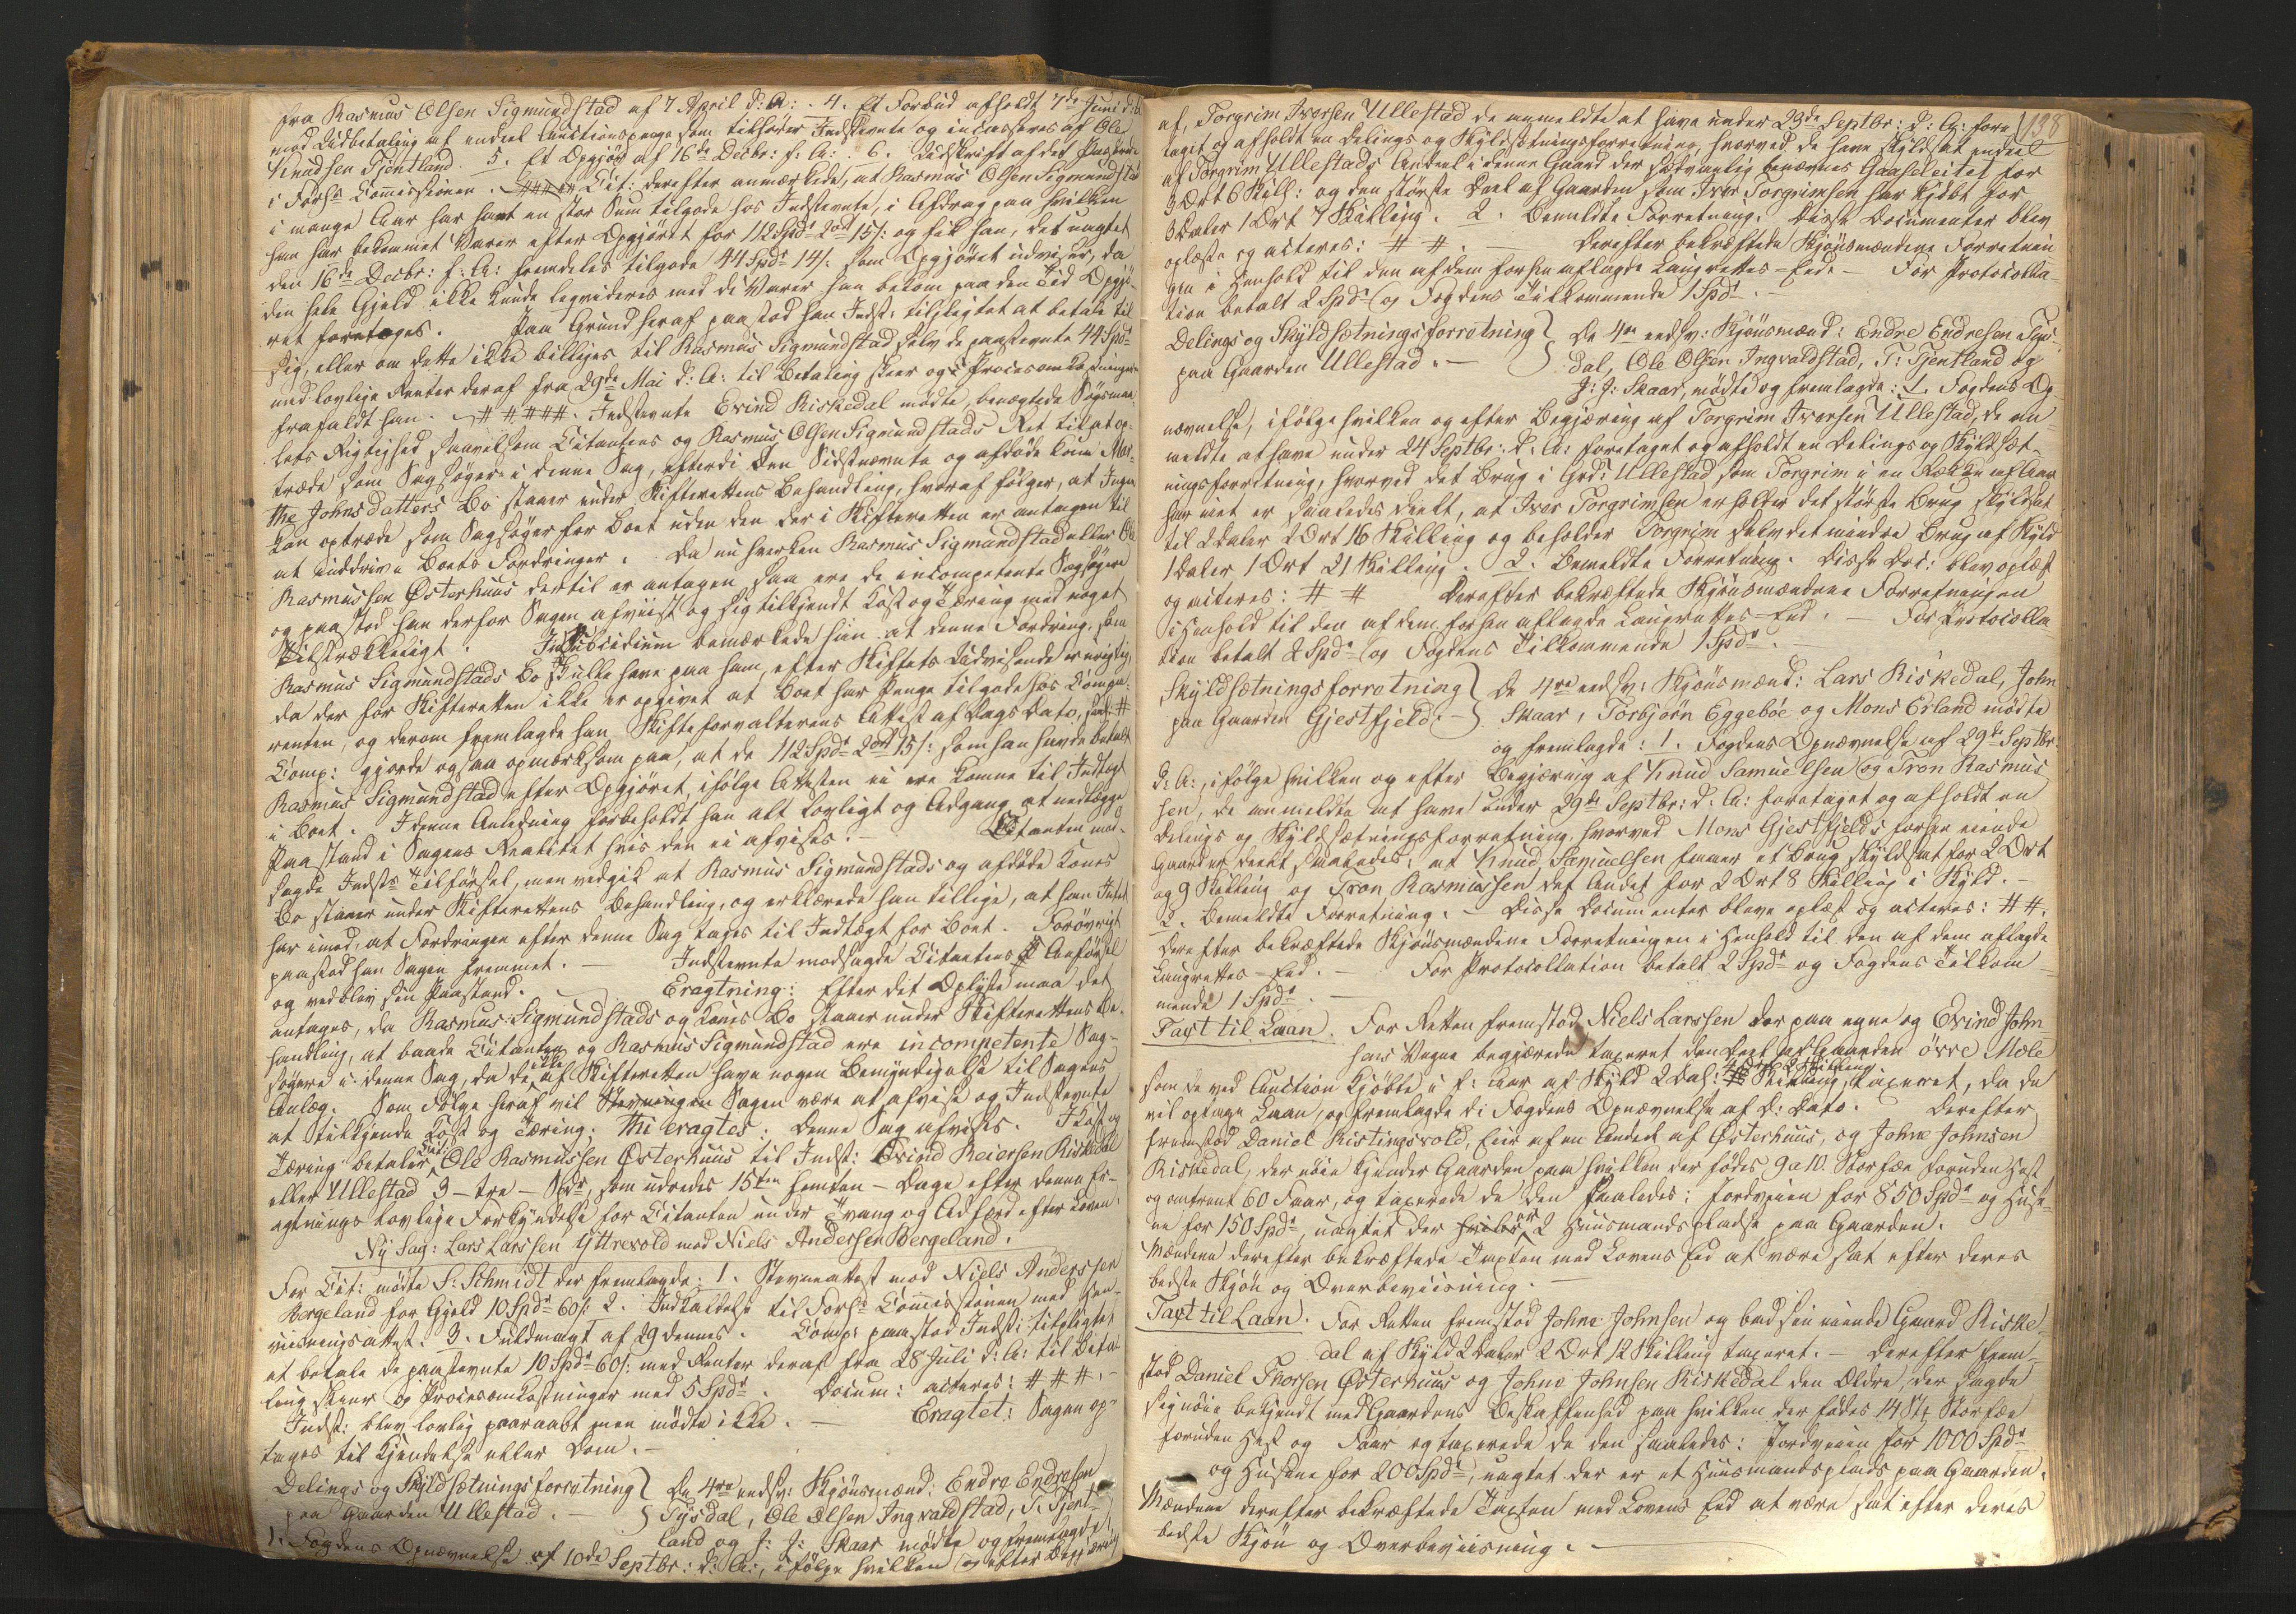 fra Rasmus Olsen Sigmundstad af 7 April d: A: . 4. Et Forbud afholdt 7de Juni d: A:
mod Udbetaling af endeel Auctionspenge som tilhører Indstevnte og incasseres af Ole
Knudsen Tjentland. 5. Et Opgjør af 16de Decbr: f: A: . 6. Udskrift af det Passerede
i Forl:s Commissionen. ##### Cit: derefter anmærkede, at Rasmus Olsen Sigmundstad
i mange Aar har havt en stor Sum tilgode hos Indstevnte, i Afdrag paa hvilken
han har bekommet Varer efter Opgjøret for 112 Spdr 2ort 15 s: og fik han, det uagtet
den 16de Decbr: f: A: fremdeles tilgode 44 Spdr 14 s. som Opgjøret udviser, da
den hele Gjeld ikke kunde liqvideres med de Varer han bekom paa den Tid Opgjø-
ret foretoges. Paa Grund heraf paastod han Indst: tilpligtet at betale til
sig, eller om dette ikke billiges til Rasmus Sigmundstad selv de paastevnte 44 Spdr
med lovlige Renter deraf fra 29de Mai d: A: til Betaling skeer og Procesomkostninger
frafaldt han. ##### . Indstevnte Evind Riskedal mødte, benægtede Søgsmaa-
lets Rigtighed saavelsom Citantens og Rasmus Olsen Sigmundstads Ret til at op-
træde som Sagsøger i denne Sag, efterdi den Sidstnævnte og afdøde Kone Mar-
the Johnsdatters Bo staaer under Skifterettens Behandling, hvoraf følger, at Ingen
kan optræde som Sagsøger for Boet uden den der i Skifteretten er antagen til
at inddrive Boets Fordringer. Da nu hverken Rasmus Sigmundstad eller Ole
Rasmussen Østerhuus dertil er antagen, saa ere de incompetente Sagsøgere
og paastod han derfor Sagen afviist og sig tilkjendt Kost og Tæring med noget
Tilstrækkeligt. In Subsidium bemærkede han at denne Fordring, som
Rasmus Sigmundstads Bo skulle have paa ham, efter Skiftets Udvisende er urigtig,
da der for Skifteretten ikke er opgivet at Boet har Penge tilgode hos Compa-
renten, og derom fremlagde han Skifteforvalterens Attest af Dags Dato, #
Comp: gjorde ogsaa opmærksom paa, at de 112 Spdr 2ort 15 s: som han havde betalt
Rasmus Sigmundstad efter Opgjøret, ifølge Attesten ei ere komne til Indtægt
i Boet. I denne Anledning forbeholdt han alt Lovligt og Adgang at nedlægge
Paastand i Sagens Realitet hvis den ei afvises. – Citanten mod-
sagde Indst:s Tilførsel, men vedgik at Rasmus Sigmundstads og afdøde Kones
Bo staaer under Skifterettens Behandling, og erklærede han tillige, at han Intet
har imod, at Fordringen efter denne Sag tages til Indtægt for Boet. Forøvrigt
paastod han Sagen fremmet. – Indstevnte modsagde Citantens Anførsel
og vedblev sin Paastand. – Eragtning: Efter det Oplyste maa det
antages, da Rasmus Sigmundstads og Kones Bo staaer under Skifterettens Be-
handling, at baade Citanten og Rasmus Sigmundstad ere incompetente Sag-
søgere i denne Sag, da de ikke af Skifteretten have nogen Bemyndigelse til Sagens
Anlæg. Som Følge heraf vil Stevningen Sagen være at afvise og Indstevnte
at tilkjende Kost og Tæring. Thi eragtes: Denne Sag afvises. I Kost og
Tæring betaler Cit: Ole Rasmussen Østerhuus til Indst: Evind Reiersen Riskedal
eller Ullestad 3 – tre – Spdr, som udredes 15ten femten – Dage efter denne Er-
agtnings lovlige Forkyndelse for Citanten under Tvang og Adfærd efter Loven.
Ny Sag: Lars Larssen Yttrevold mod Niels Andersen Bergeland.
For Cit: mødte S: Schmidt der fremlagde: 1. Stevneattest mod Niels Anderssen
Bergeland for Gjeld 10 Spdr 60 s: 2. Indkaldelse til Forl:s Commissionen med Hen-
viisningsattest. 3. Fuldmagt af 29 dennes. Comp: paastod Indst: tilpligtet
at betale de paastevnte 10 Spdr 60 s: med Renter deraf fra 28 Juli d: A: til Beta-
ling skeer og Procesomkostninger med 5 Spdr. Docum: acteres: ###. –
Indst: blev lovlig paaraabt men mødte ikke. – Eragtet: Sagen op-
tages til Kjendelse eller Dom. –
Delings og Skyldsætningsforretning } De 4re eedsv: Skjønsmænd: Endre Endresen
paa Gaarden Ullestad. – } Tysdal, Ole Olsen Ingvaldstad, T: Tjent-
land og J: J: Skaar mødte og fremlagde,
1. Fogdens Opnævnelse af 10de Septbr: d: A:, ifølge hvilken og efter Begjæring
138
af, Torgrim Iversen Ullestad de anmeldte at have under 23de Septbr: d: A: fore
taget og afholdt en Delings og Skyldsætningsforretning, hvorved de have skyldsat endeel
af Torgrim Ullestads Andeel i denne Gaard der sædvanlig benævnes Gaaseleitet for
3 Ort 6 Skill: og den største Deel af Gaarden som Iver Torgrimsen har kjøbt for
3 Daler 1 Ort 7 Skilling. 2. Bemeldte Forretning. Disse Documenter blev
oplæste og acteres: ##. – Derefter bekræftede Skjønsmændene Forretnin
gen i Henhold til den af dem forhen aflagde Laugrettes-Eed. – For Protocolla-
tion betalt 2 Spdr og Fogdens Tilkommende 1 Spdr. –
Delings og Skyldsætningsforretning } De 4re eedsv: Skjønsmænd: Endre Endresen Tys-
paa Gaarden Ullestad. – } dal, Ole Olsen Ingvaldstad, T: Tjentland og
J: J: Skaar, mødte og fremlagde: 1. Fogdens Op-
nævnelse, ifølge hvilken og efter Begjæring af Torgrim Iversen Ullestad, de an-
meldte at have under 24 Septbr: d: A: foretaget og afholdt en Delings og Skyldsæt-
ningsforretning, hvorved det Brug i Grd: Ullestad som Torgrim i en Række af Aar
har eiet er saaledes deelt, at Iver Torgrimsen erholder det største Brug skyldsat
til 2 Daler 2 Ort 16 Skilling og beholder Torgrim selv det mindre Brug af Skyld
1 Daler 1 Ort 21 Skilling. 2. Bemeldte Forretning. Disse Doc: blev oplæst
og acteres: ## Derefter bekræftede Skjønsmændene Forretningen
i Henhold til den af dem forhen aflagde Laugrettes-Eed. – For Protocolla-
tion betalt 2 Spdr og Fogdens Tilkommende 1 Spdr. –
Skyldsætningsforretning } De 4re eedsv: Skjønsmænd: Lars Riskedal, John
paa Gaarden Gjestfjeld. – } Skaar, Torbjørn Eggebøe og Mons Erland mødte
og fremlagde: 1. Fogdens Opnævnelse af 29de Septbr:
d: A:, ifølge hvilken og efter Begjæring af Knud Samuelsen og Tron Rasmus
sen, de anmeldte at have under 29de Septbr: d: A: foretaget og afholdt en
Delings og Skyldsætningsforretning, hvorved Mons Gjestfjelds forhen eiende
Gaard er deelt saaledes: at Knud Samuelsen faaer et Brug skyldsat for 2 Ort
og 9 Skilling og Tron Rasmussen det Andet for 2 Ort 8 Skilling i Skyld. –
2. Bemeldte Forretning. – Disse Documenter bleve oplæst og acteres: ##.
Derefter bekræftede Skjønsmændene Forretningen i Henhold til den af dem aflagde
Laugrettes-Eed. – For Protocollation betalt 2 Spdr og Fogdens Tilkom-
mende 1 Spdr. –
Taxt til Laan. For Retten fremstod Niels Larssen der paa egne og Evind John-
sens Vegne begjærede taxeret den Deel af Gaarden øvre Mæle
som de ved Auction kjøbte i f: Aar af Skyld 2 Dal: 4 Ort 2 Skilling Skilling, taxeret, da de
vil optage Laan, og fremlagde de Fogdens Opnævnelse af d: Dato. Derefter
fremstod Daniel Kistingsvold, Eier af en Andeel af Østerhuus, og Johne Johnsen
Riskedal, der nøie kjender Gaarden paa hvilken der fødes 9 a 10. Storfæe foruden Hest
og omtrent 60 Faar, og taxerede de den saaledes: Jordveien for 850 Spdr og Huse-
ne for 150 Spdr, uagtet der hviler er 2 Huusmandspladse paa Gaarden.
Mændene derefter bekræftede Taxten med Lovens Eed at være sat efter deres
bedste Skjøn og Overbeviisning. –
Taxt til Laan. For Retten fremstod Johne Johnsen og bad sin eiende Gaard Riske-
dal af Skyld 2 Daler 2 Ort 12 Skilling taxeret. – Derefter frem-
stod Daniel Thorsen Østerhuus og Johne Johnsen Riskedal den Ældre, der sagde
sig nøie bekjendt med Gaardens Beskaffenhed paa hvilken der fødes 14 Stk Storfæe
foruden Hest og Faar og taxerede de den saaledes: Jordveien for 1000 Spdr
og Husene for 200 Spdr, uagtet der er et Huusmandsplads paa Gaarden.
Mændene derefter bekræftede Taxten med Lovens Eed at være sat efter deres
bedste Skjøn og Overbeviisning. –